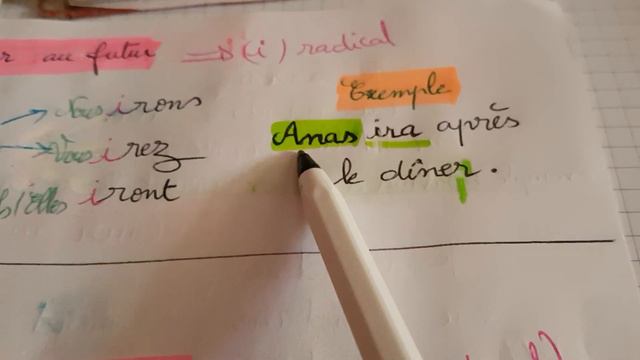 au futur ⇒ (i) radical
Exemple
Nous irons
Vous irez
Elles iront
Anas ira après
le dîner.